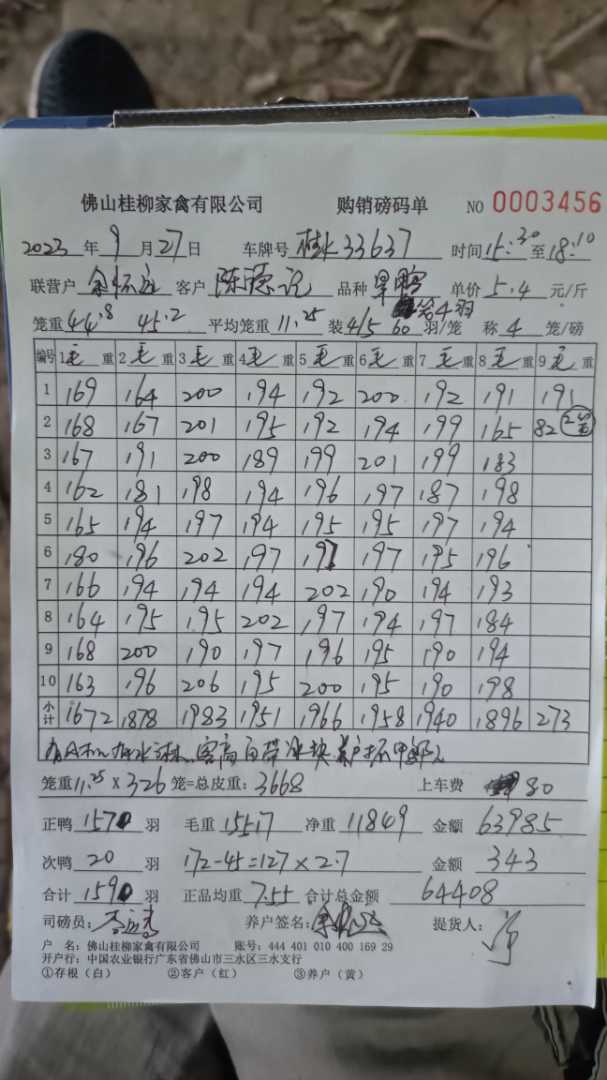 佛山桂柳家禽有限公司 购销磅码单 NO 0003456
2023 年 9 月 27 日 车牌号 桂K33637 时间 15:30 至 18:10
联营户 客户 陈德 品种 旱鸭 单价 5.4 元/斤
笼重 44.8 45.2 平均笼重 11.25 装 4/5 60 羽/笼 称 4 笼/磅
编号 1毛重 2毛重 3毛重 4毛重 5毛重 6毛重 7毛重 8毛重 9毛重
1 169 164 200 194 192 200 192 191 191
2 168 167 201 195 192 194 199 165 82 2笼
3 167 191 200 189 199 201 199 183
4 162 181 198 194 196 197 187 198
5 165 194 197 194 195 195 197 194
6 180 196 202 197 197 195 196
7 166 194 194 194 202 190 194 193
8 164 195 195 202 197 194 197 184
9 168 200 190 197 196 195 190 194
10 163 196 206 195 200 195 190 198
小计 1672 1878 1983 1951 1966 1958 1940 1896 273
笼重 11.25 X 326 笼=总皮重: 3668 上车费 80
正鸭 1570 羽 毛重 15517 净重 11849 金额 63985
次鸭 20 羽 172-45=127×2.7 金额 343
合计 1590 羽 正品均重 7.55 合计总金额 64408
司磅员: 养户签名: 提货人:
户 名: 佛山桂柳家禽有限公司 账号: 444 401 010 400 169 29
开户行: 中国农业银行广东省佛山市三水区三水支行
①存根（白） ②客户（红） ③养户（黄）